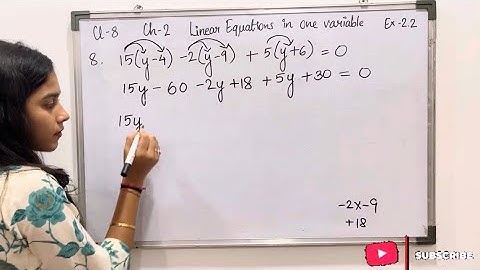 Cl-8 Ch-2 Linear Equations in one variable Ex-2.2
8. 15(y-4) -2(y-9) + 5(y+6) = 0
15y - 60 -2y +18 +5y +30 = 0
15y
-2x-9
+18
SUBSCRIBE